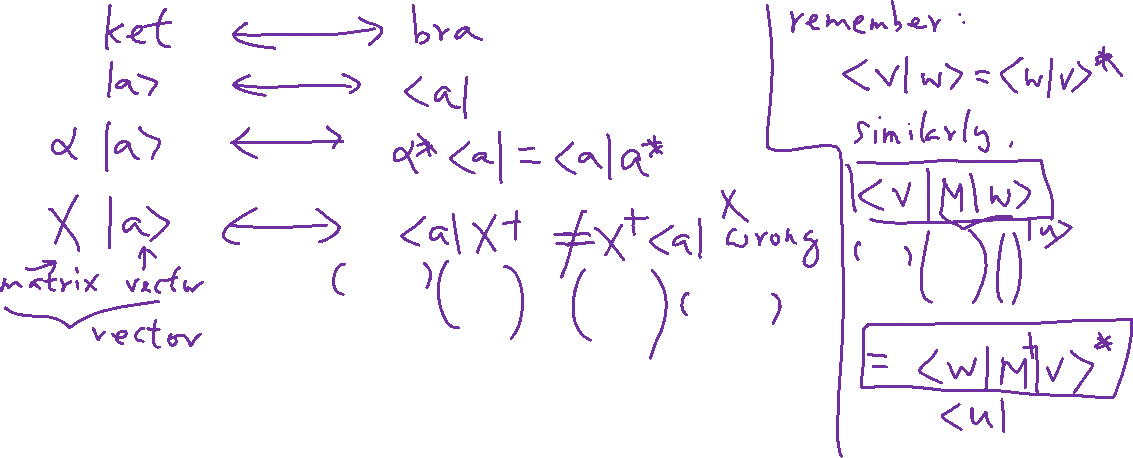 ket ⟷ bra
|a> ⟷ <a|
α |a> ⟷ α* <a| = <a| a*
X |a> ⟷ <a| X† ≠ X† <a| X wrong
matrix vector
vector
( ) ( ) ( ) ( )
remember:
<v|w> = <w|v>*
similarly,
<v|M|w>
|u>
( ) ( ) ( )
= <w|M†|v>*
<u|